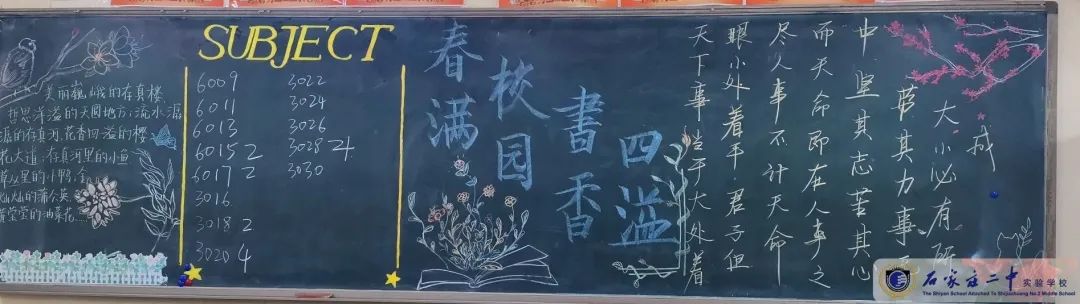 美丽巍峨的存真楼,
哲思洋溢的天圆地方,流水潺
潺的存真河,花香四溢的樱
花大道,存真河里的小鱼
草丛里的小野
灿灿的蒲公英
莹莹的油菜花……
SUBJECT
6009
6011
6013
6015 2
6017 2
3016
3018 2
3020 4
3022
3024
3026
3028 4
3030
春满
校园
書香
四溢
天下事当于大处着
眼小处着手君子但
尽人事不计天命
而天命即在人事之
中坚其志苦其心
劳其力事
大小必有所
成
石家庄二中 实验学校
The Shiyan School Attached To Shijiazhuang No.2 Middle School